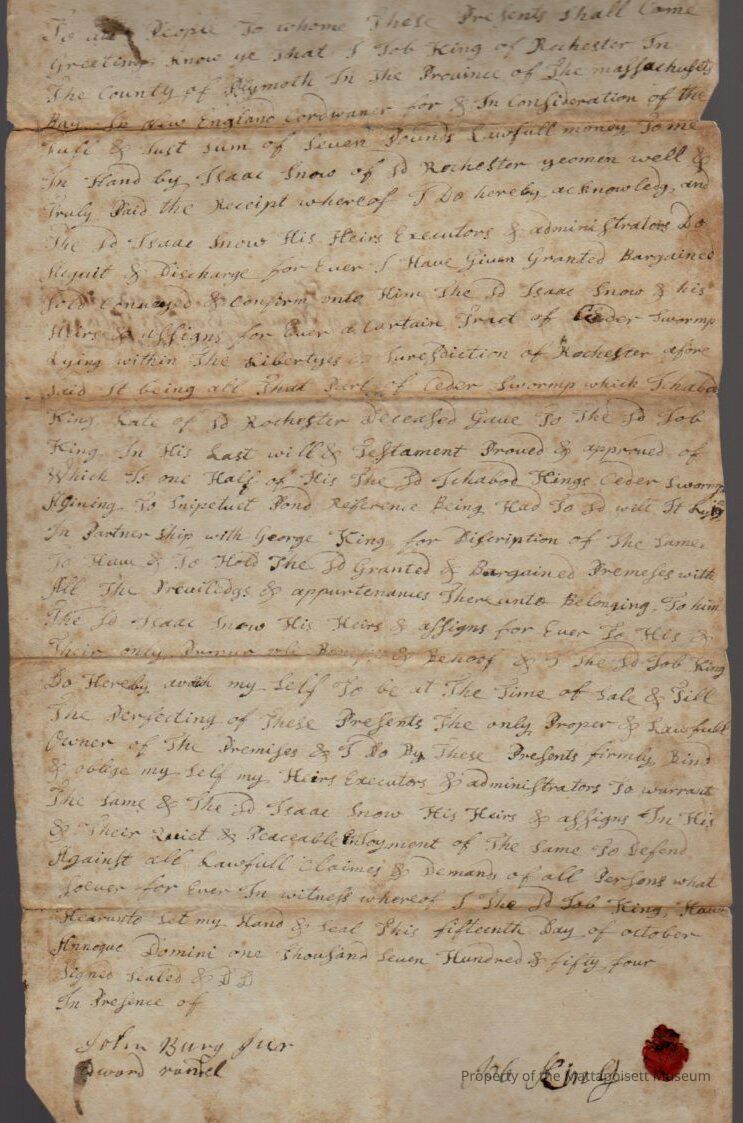 To all People To whome These Presents Shall Come
Greeting know ye That I Job King of Rochester In
The County of Plymoth In The Province of The massachusets
Bay In New England Cordwaner for & In Consideration of the
Full & Just sum of Seven Pounds Lawfull money To me
In Hand by Isaac Snow of sd Rochester yeomen well &
Truly Paid the Receipt whereof I Do hereby acknowledg and
The sd Isaac Snow His Heirs Executors & administrators Do
Acquit & Discharge for Ever I Have Given Granted Bargained
Sold Conveyed & Confirm unto Him The sd Isaac Snow & his
Heirs & assigns for Ever a Certain Tract of Ceder Swormp
Lying within The Libertyes Juresdiction of Rochester afore
said It being all That Part of Ceder Swormp which Ichabod
King Late of sd Rochester Deceased Gave To The sd Job
King In His Last will & Testament Proved & approved of
Which Is one Half of His The sd Ichabod Kings Ceder Swormp
AJining To Snipetuct Pond Reference Being Had To sd will It Lying
In Partner Ship with George King for Discription of The same.
To Have & To Hold The sd Granted & Bargained Premeses with
All The Previledgs & appurtenances There unto Belonging To him
The sd Isaac Snow His Heirs & assigns for Ever To His &
Their only Proper use Benefit & Behoof & I The sd Job King
Do Hereby my Self To be at The Time of Sale & Till
The Perfecting of These Presents The only Proper & Lawfull
Owner of The Premises & I Do By These Presents firmly Bind
& oblige my Self my Heirs Executors & administrators To warrant
The same & The sd Isaac Snow His Heirs & assigns In His
& Their Quiet & Peaceable InJoyment of The same To Defend
Against all Lawfull Claimes & Demands of all Persons what
soever for Ever In witness whereof I The sd Job King Have
Hearunto set my Hand & Seal This fifteenth Day of october
Annoque Domini one Thousand Seven Hundred & fifty four
Signed Sealed & DD
In Presence of
John Burg Juer
Job King
Property of the Mattapoisett Museum